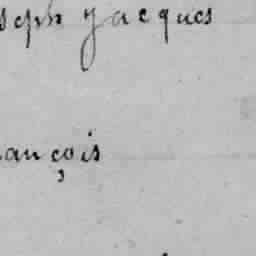 seph Jacques
ançois